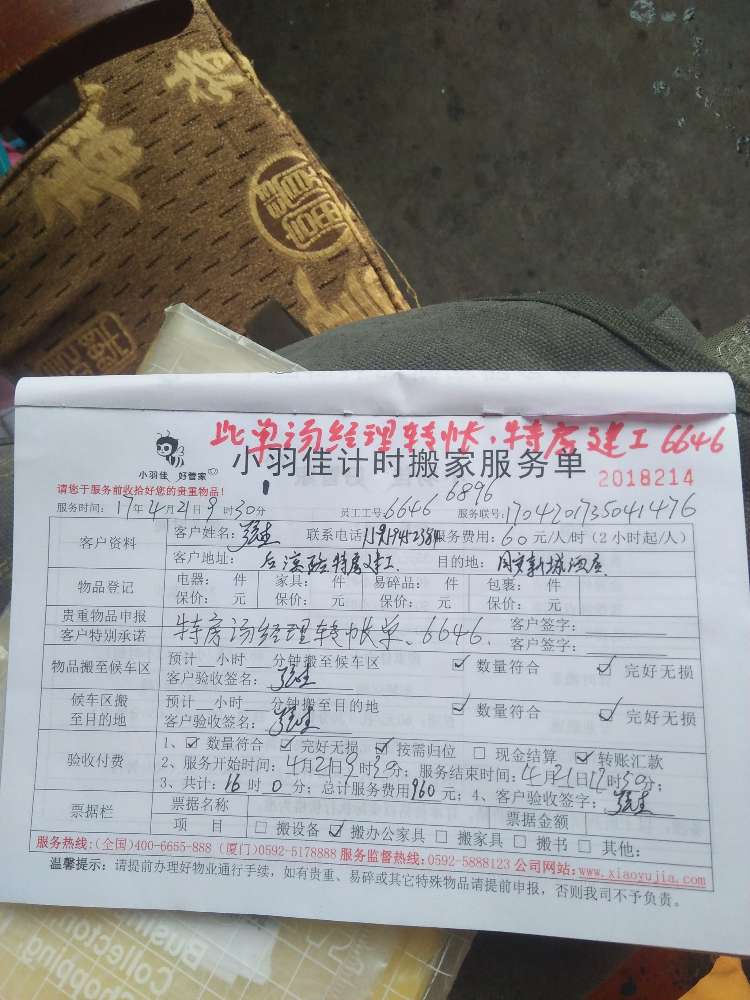 此单汤经理转帐.特房建工6646
小羽佳 好管家
小羽佳计时搬家服务单
2018214
请您于服务前收拾好您的贵重物品!
6896
服务时间: 17年4月21日9时30分 员工工号:6646 服务联号:1704201735041476
客户资料 客户姓名: 联系电话 服务费用:60元/人/时(2小时起/人)
客户地址: 后溪路特房建工. 目的地:
物品登记 电器: 件 家具: 件 易碎品: 件 包裹: 件
保价: 元 保价: 元 保价: 元 保价: 元
贵重物品申报 客户签字:
客户特别承诺 特房汤经理转帐单、6646. 客户签字:
物品搬至候车区 预计__小时__分钟搬至候车区 ☑ 数量符合 ☑ 完好无损
客户验收签名:
候车区搬至目的地 预计__小时__分钟搬至目的地 ☑ 数量符合 ☑ 完好无损
客户验收签名:
验收付费 1、☑ 数量符合 ☑ 完好无损 ☑ 按需归位 □ 现金结算 ☑ 转账汇款
2、服务开始时间:4月21日9时30分; 服务结束时间:4月21日12时50分;
3、共计:16时0分; 总计服务费用960元; 4、客户验收签字:
票据栏 票据名称 票据金额
项 目 □ 搬设备 ☑ 搬办公家具 □ 搬家具 □ 搬书 □ 其他:
服务热线:(全国)400-6655-888 (厦门)0592-5178888 服务监督热线:0592-5888123 公司网站:www.xiaoyujia.com
温馨提示: 请提前办理好物业通行手续, 如有贵重、易碎或其它特殊物品请提前申报, 否则我司不予负责。
Business
Collector
Shopping